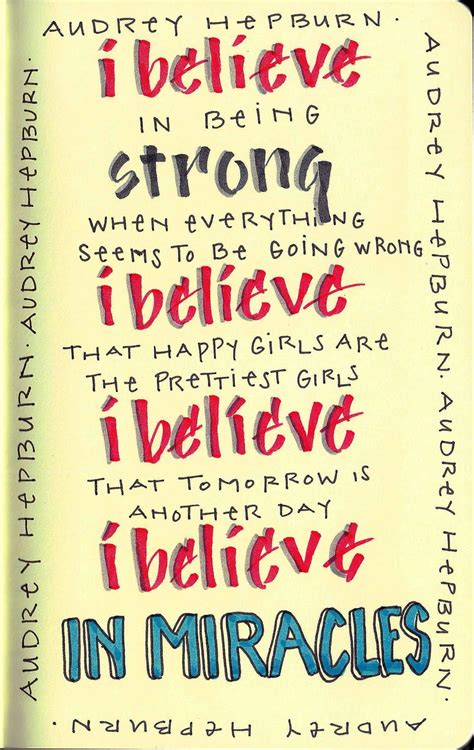 AUDREY HEPBURN.
i believe
IN BEING
strong
WHEN EVERYTHING
SEEMS TO BE GOING WRONG
i believe
THAT HAPPY GIRLS ARE
THE PRETTIEST GIRLS
i believe
THAT TOMORROW IS
ANOTHER DAY
i believe
IN MIRACLES
AUDREY HEPBURN. AUDREY HEPBURN.
AUDREY HEPBURN. AUDREY HEPBURN.
AUDREY HEPBURN.